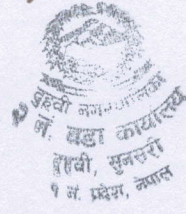 दुहवी नगरपालिका
नं. वडा कार्यालय
दुहवी, सुनसरी
१ नं. प्रदेश, नेपाल